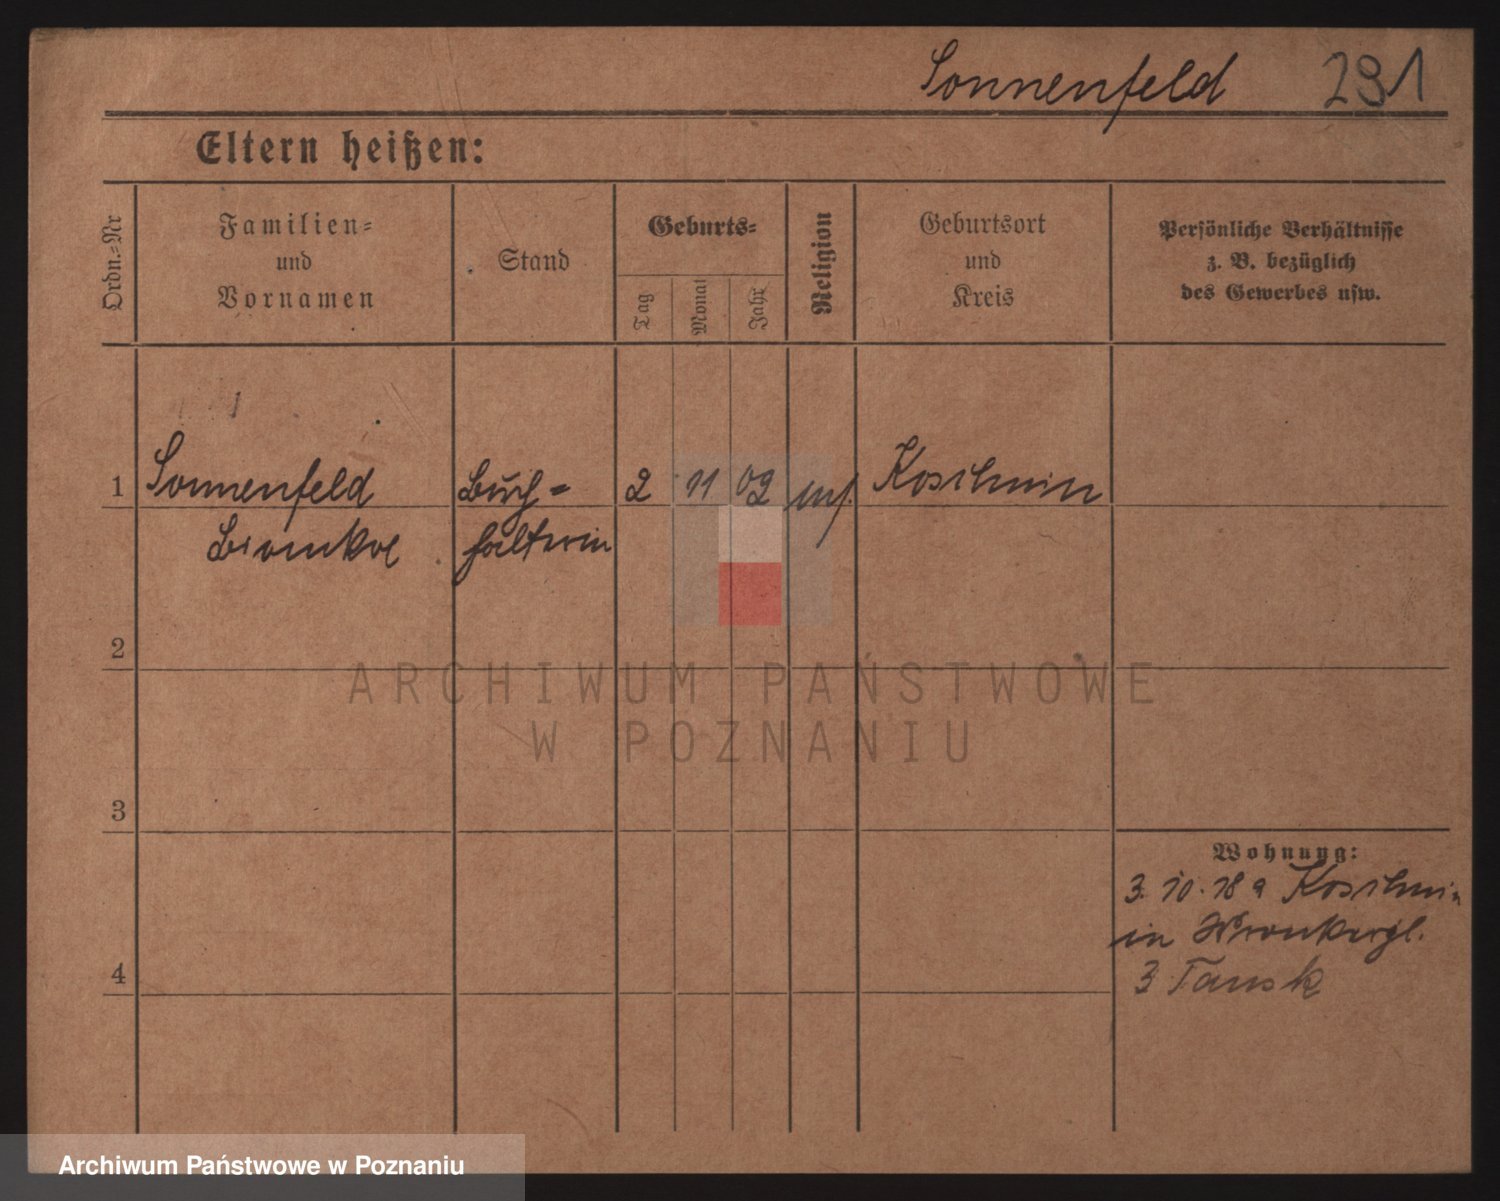 Sonnenfeld 291
Eltern heißen:
Ordn.-Nr
Familien=
und
Vornamen
Stand
Geburts=
Tag
Monat
Jahr
Religion
Geburtsort
und
Kreis
Persönliche Verhältnisse
z. B. bezüglich
des Gewerbes usw.
1 Sonnenfeld Buch= 2 11 02 Koschmin
halterin
2
ARCHIWUM PAŃSTWOWE
W POZNANIU
3
Wohnung:
3. 10. 18 a Koschmin
in
4
3 Tausk
Archiwum Państwowe w Poznaniu